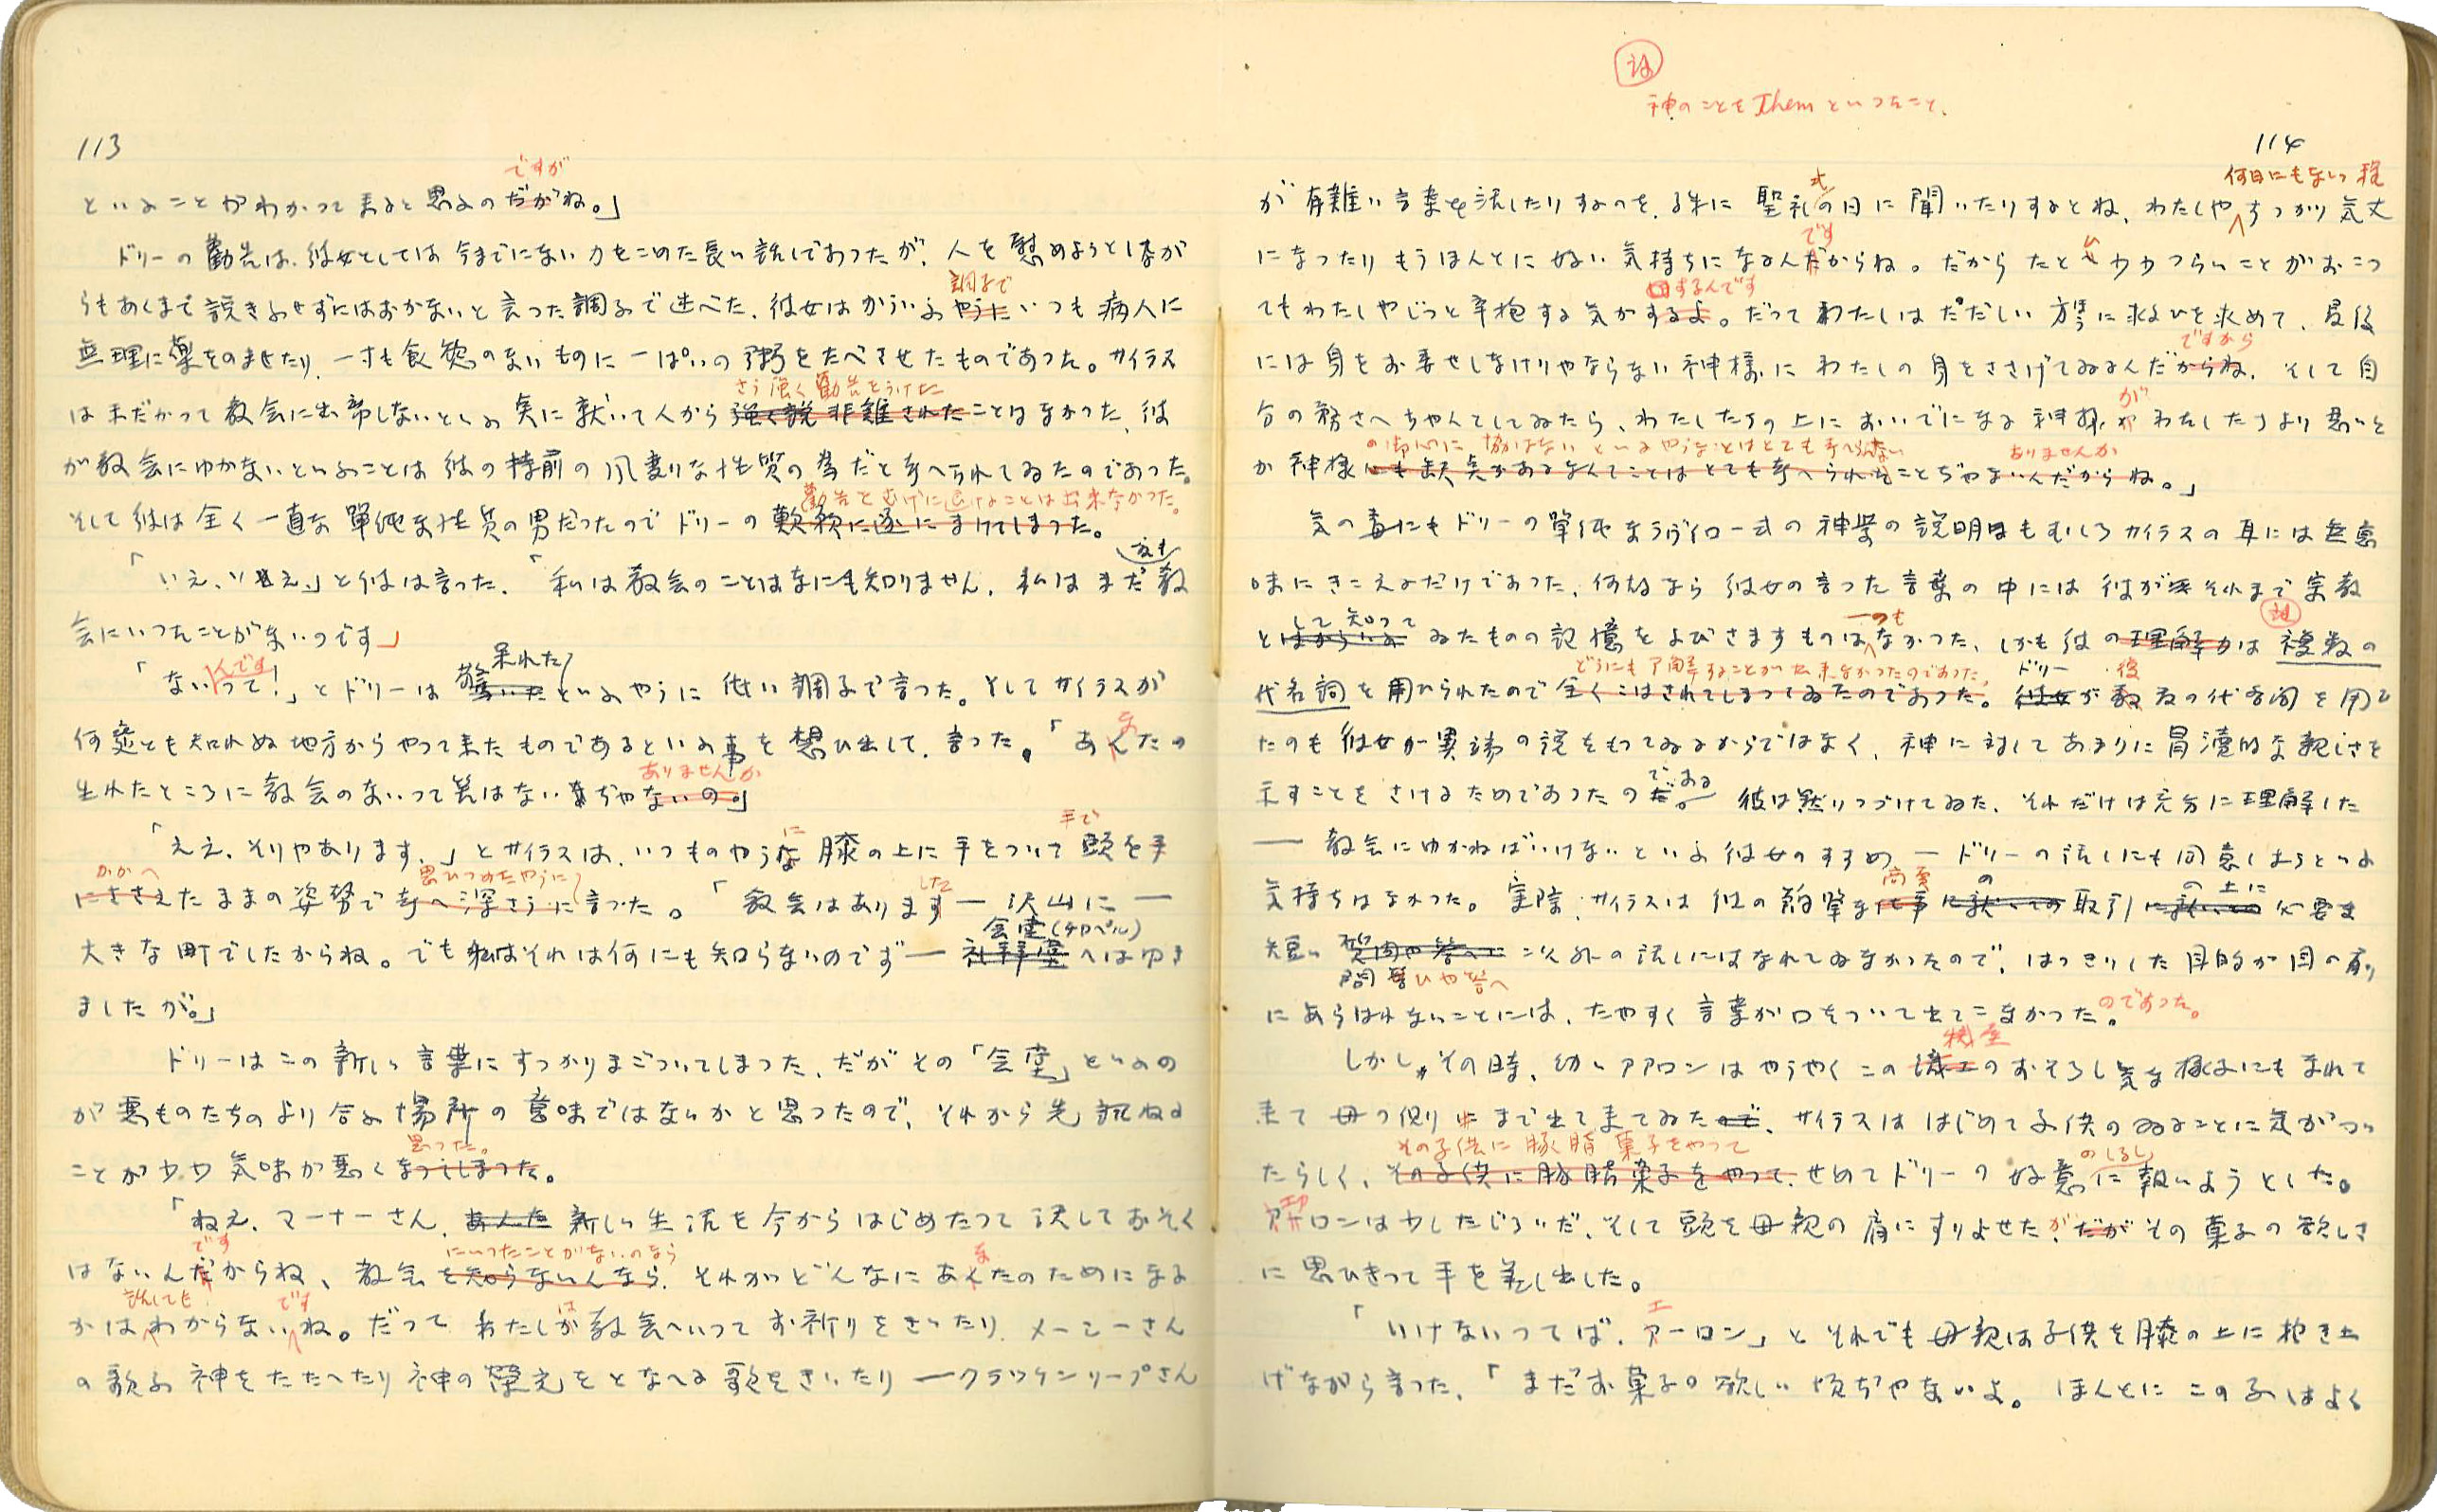 113
ですが
といふことがわかつて来ると思ふのだがね。」
ドリーの勧告は、彼女としては今までにない力をこめた長い話しであつたが、人を慰めようとしなが
調子で
らもあくまで説きふせずにはおかないと言つた調子で述べた、彼女はかういふやうにいつも病人に
無理に薬をのませたり、一寸も食慾のないものに一ぱいの粥をたべさせたものであつた。サイラス
さう強く勧告をうけた
は未だかつて教会に出席しないといふ実に就いて人から強く説非難されたことはなかつた、彼
が教会にゆかないといふことは彼の持前の風変りな性質の為だと考へられてゐたのであつた。
勧告をむげに退けることは出来なかつた。
そして彼は全く一直な単純な性質の男だつたのでドリーの歎願に遂にまけてしまつた。
「いえ、いえ」と彼は言つた、「私は教会のことはなにも知りません、私はまだ教
会にいつたことがないのです」
呆れた
んです
「ないつて!」とドリーは驚いたといふやうに低い調子で言つた。そしてサイラスが
何処とも知れぬ地方からやつて来たものであるといふ事を想ひ出して、言つた。「あんたの
な
ありませんか
生れたところに教会のないつて筈はないぢやないの。」
手で
に
「ええ、そりやあります、」とサイラスは、いつものやうな膝の上に手をついて頭を手
かかへ
思ひつめたやうに
した
にささえたままの姿勢で考へ深さうに言つた。「教会はあります―沢山に―
会堂(チャペル)
大きな町でしたからね。でも私はそれは何にも知らないのです―礼拝堂へはゆき
ましたが。」
ドリーはこの新しい言葉にすつかりまごついてしまつた、だがその「会堂」といふの
が悪ものたちのより合ふ場所の意味ではないかと思つたので、それから先訊ねる
思つた。
ことが少々気味が悪くなつてしまつた。
「ねえ、マーナーさん、あんた新しい生活を今からはじめたつて決しておそく
です
にいつたことがないのなら
な
はないんだからね、教会を知らないんなら、それがどんなにあんたのためになる
話しても
です
は
かはわからないね。だつてわたしが教会へいつてお祈りをきいたり、メーシーさん
の歌ふ神をたたへたり神の栄光をとなへる歌をきいたり―クラツケンソープさん
註
神のことをThemといつたこと、
114
何日にもない程
式
が有難い言葉を話したりするのを、殊に聖礼の日に聞いたりするとね、わたしやすつかり気丈
です
ひ
になつたりもうほんとに好い気持ちになるんだからね。だからたとへ少々つらいことがおこつ
するんです
てもわたしやじつと辛抱する気がするよ。だつてわたしはただしい方に救ひを求めて、最後
ですから
にには身をお委せしなけりやならない神様にわたしの身をささげてゐるんだからね、そして自
が
分の務さへちやんとしてゐたら、わたしたちの上においでになる神様がわたしたちより悪いと
の御心に協はないといふやうなことはとても考へられない
ありませんか
か神様にも缺点があるなんてことはとても考へられることぢやないんだからね。」
気の毒にもドリーの単純なラヴイロー式の神学の説明もむしろサイラスの耳には無意
味にきこえるだけであつた、何故なら彼女の言つた言葉の中には彼がそれまで宗教
して知つて
一つも
註
とはからいふゐたものの記憶をよびさますものはなかつた、しかも彼の理解力は複数の
どうにも了解することが出来なかつたのであつた。
ドリー
複
代名詞を用ひられたので全くこはされてしまつてゐたのであつた。彼女が数の代名詞を用ひ
たのも彼女が異端の説をもつてゐるからではなく、神に対してあまりに冒瀆的な親しさを
である
示すことをさけるためであつたのだ。彼は黙りつづけてゐた、それだけは充分に理解した
―教会にゆかねばいけないといふ彼女のすすめ―ドリーの話しにも同意しようといふ
商売
の
の上に
気持ちはなかつた。実際、サイラスは彼の簡単な仕事に就いての取引に就いての必要な
短い質問や答へに以外の話しにはなれてゐなかつたので、はつきりした目的が目の前
問ひや答へ
にあらはれないことには、たやすく言葉が口をついて出てこなかつた。のであつた。
しかし、その時、幼いアアロンはやうやくこの織工のおそろし気な様子にもなれて
来て母の側まで出て来てゐたので、サイラスははじめて子供のゐることに気がつい
その子供に豚脂菓子をやつて
のしるし
たらしく、その子供に豚脂菓子をやつて、せめてドリーの好意に報いようとした。
ロンは少したじろいだ、そして頭を母親の肩にすりよせたが、だがその菓子の欲しさ
に思ひきつて手を差し出した。
エ
「いけないつてば、アーロン」とそれでも母親は子供を膝の上に抱き上
げながら言つた、「まだお菓子の欲しい頃ぢやないよ。ほんとにこの子はよく